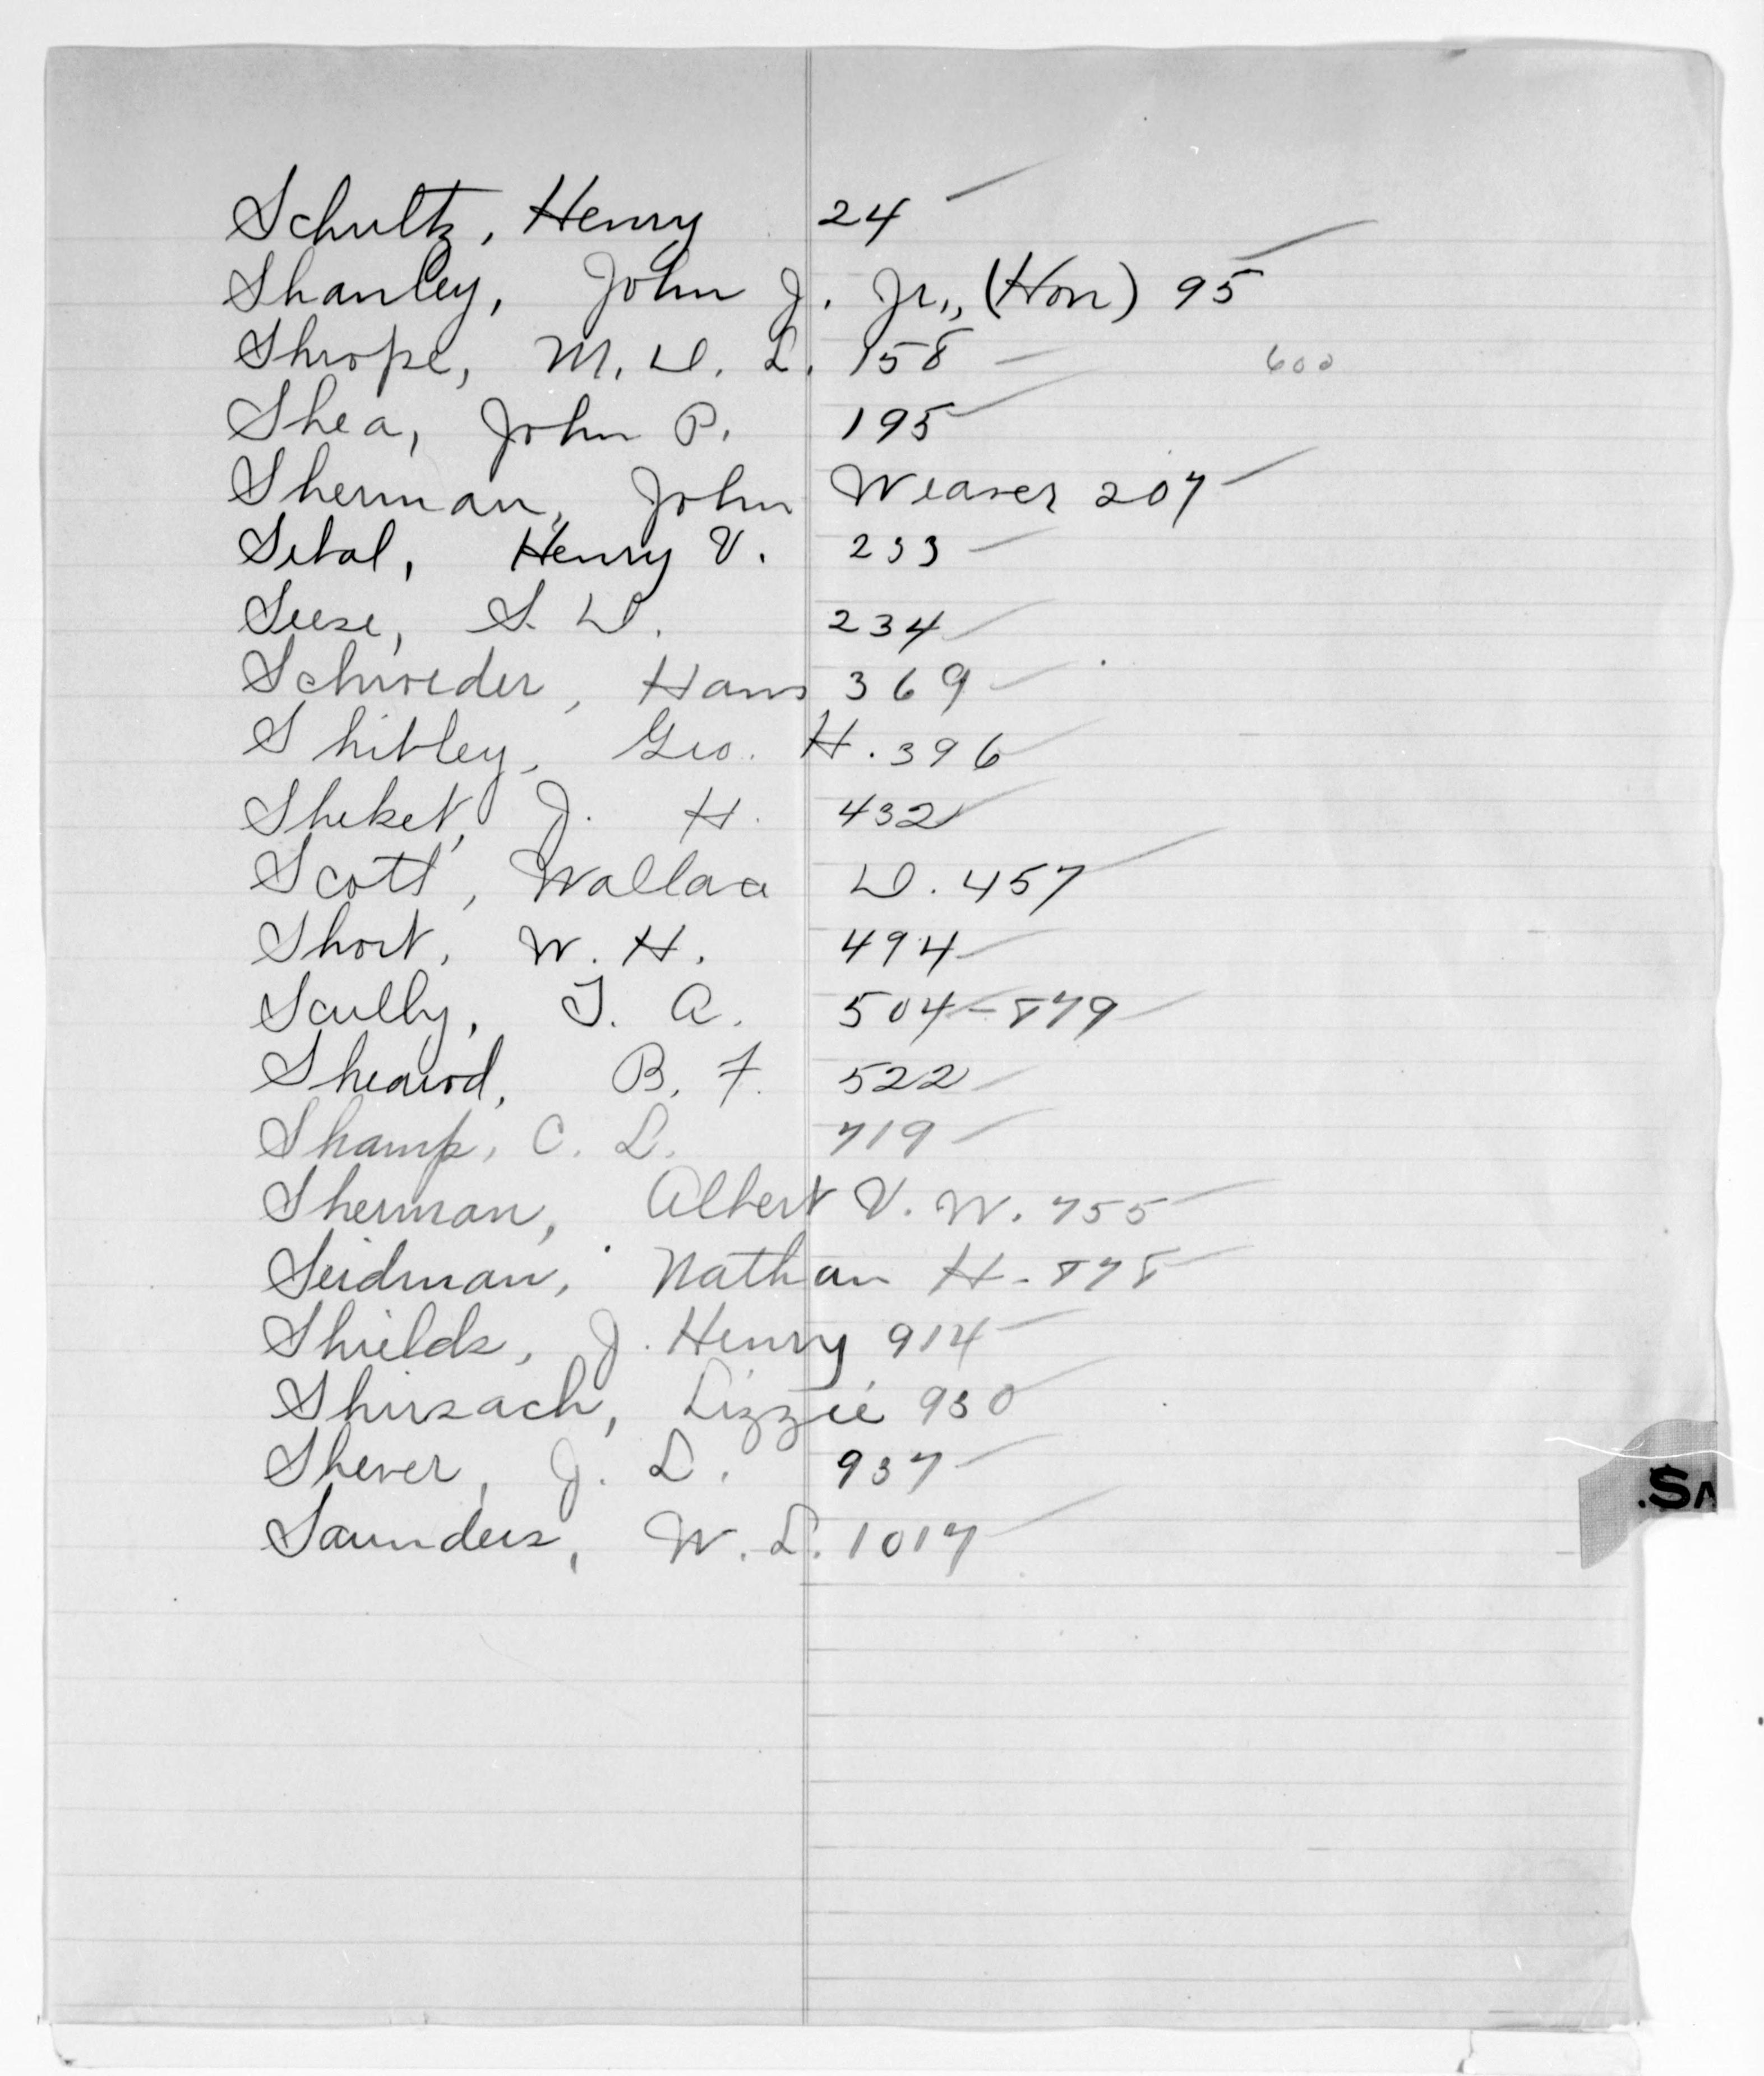 Schultz, Henry 24
Shanley, John J. Jr., (Hon) 95
Shrope, M. D. L. 158 600
Shea, John P. 195
Sherman, John Weaver 207
Sebal, Henry V. 233
Seese, S. D. 234
Schroeder, Hans 369
Shibley, Geo. H. 396
Sheket, J. H. 432
Scott, Wallace D. 457
Short, W. H. 494
Scully, T. A. 504 - 879
Shearod, B. F. 522
Shamp, C. L. 719
Sherman, Albert V. W. 755
Seidman, Nathan H - 878
Shields, J. Henry 914
Shirsach, Lizzie 930
Shever, J. L. 937
Saunders, W. L. 1017